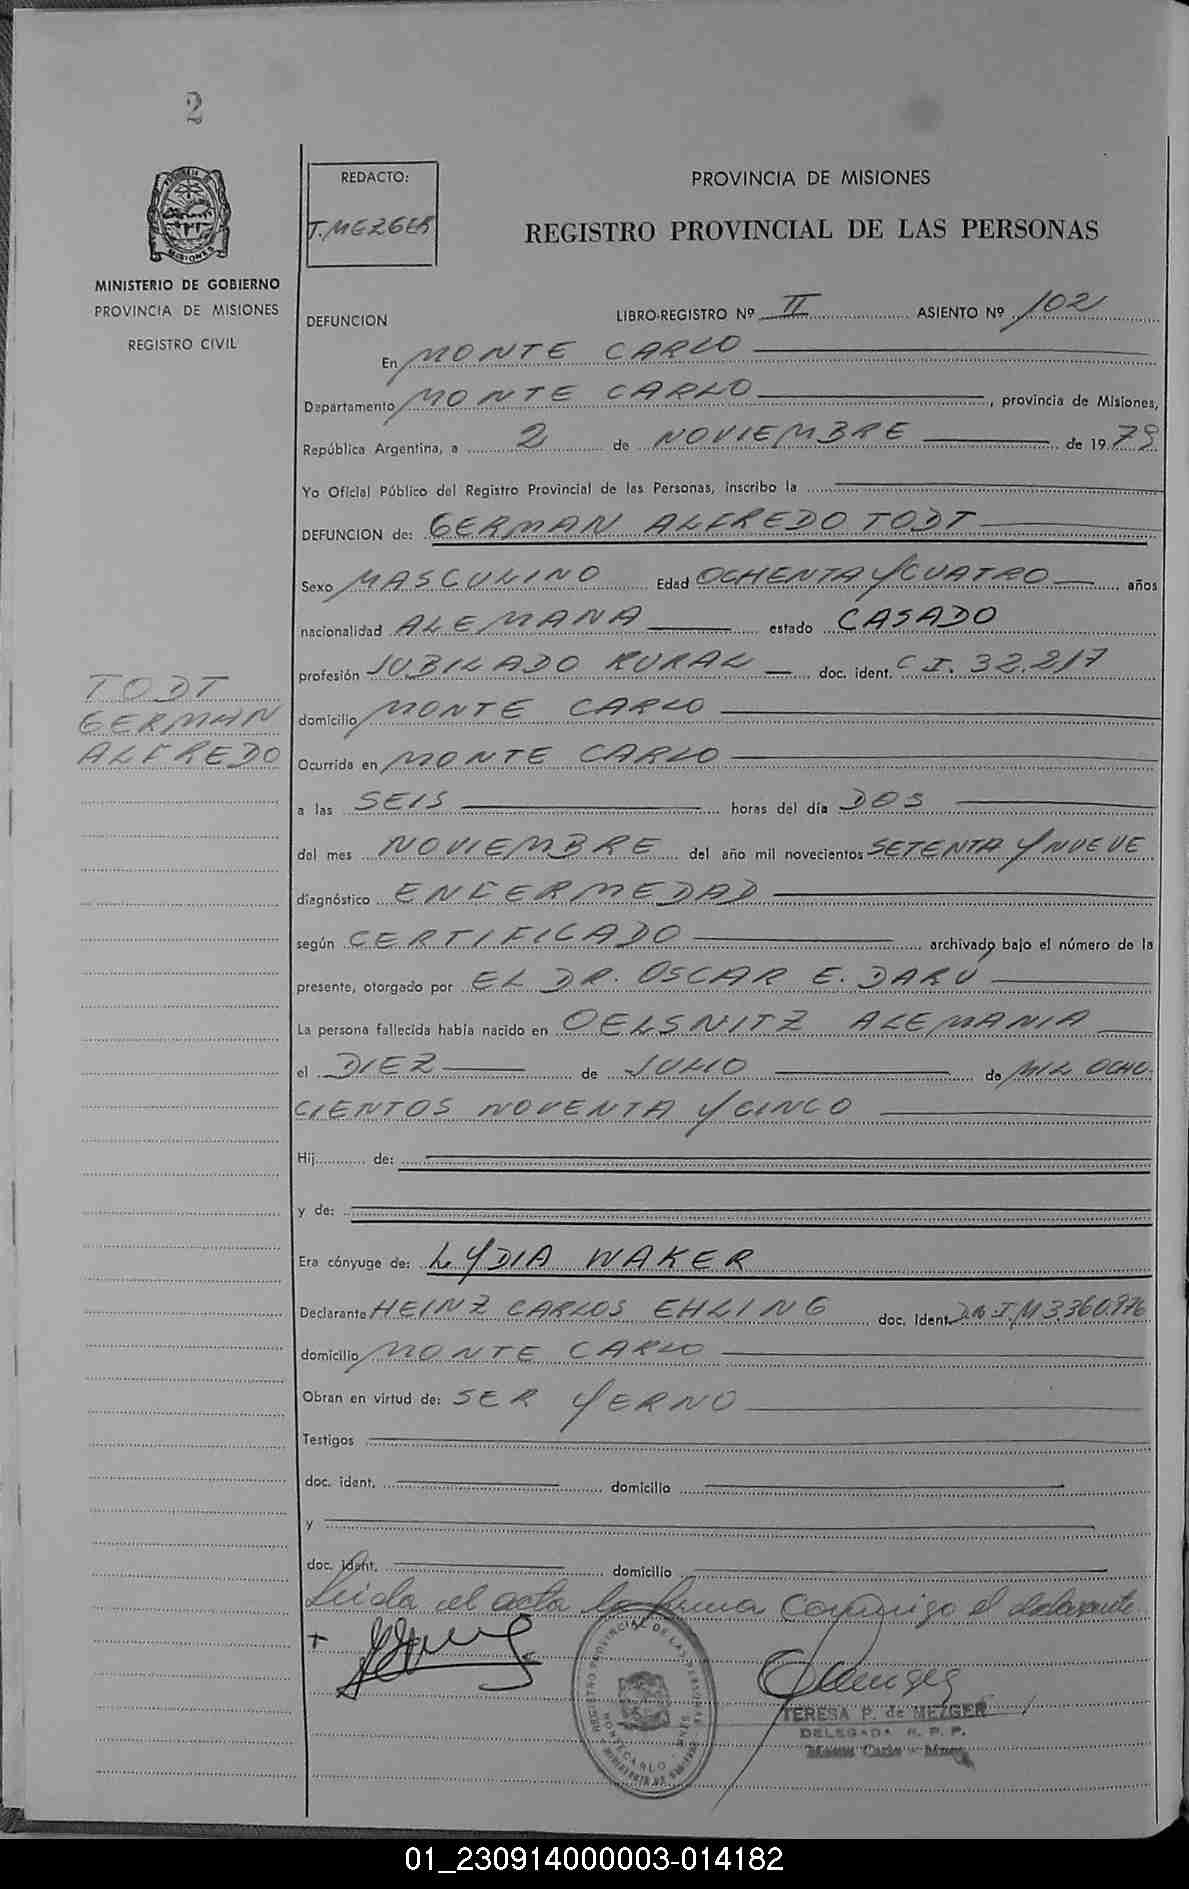 2
REDACTO:
T. MEZGER
PROVINCIA DE MISIONES
REGISTRO PROVINCIAL DE LAS PERSONAS
MINISTERIO DE GOBIERNO
PROVINCIA DE MISIONES
REGISTRO CIVIL
DEFUNCION LIBRO-REGISTRO Nº II ASIENTO Nº 102
En MONTE CARLO
Departamento MONTE CARLO, provincia de Misiones,
República Argentina, a 2 de NOVIEMBRE de 1979
Yo Oficial Público del Registro Provincial de las Personas, inscribo la
DEFUNCION de: GERMAN ALFREDO TODT
Sexo MASCULINO Edad OCHENTA Y CUATRO años
nacionalidad ALEMANA estado CASADO
profesión JUBILADO RURAL doc. ident. C I. 32.217
TODT
GERMAN
ALFREDO
domicilio MONTE CARLO
Ocurrida en MONTE CARLO
a las SEIS horas del día DOS
del mes NOVIEMBRE del año mil novecientos SETENTA Y NUEVE
diagnóstico ENFERMEDAD
según CERTIFICADO archivado bajo el número de la
presente, otorgado por EL DR. OSCAR E. DARU
La persona fallecida había nacido en OELSNITZ ALEMANIA
el DIEZ de JULIO de MIL OCHO
CIENTOS NOVENTA Y CINCO
Hij de:
y de:
Era cónyuge de: LYDIA WAKER
Declarante HEINZ CARLOS EHLING doc. Ident. D.N.I.M 3.360.976
domicilio MONTE CARLO
Obran en virtud de: SER YERNO
Testigos
doc. ident. domicilio
y
doc. ident. domicilio
Leida el acta la firma conmigo el declarante
REGISTRO PROVINCIAL DE LAS PERSONAS
MONTECARLO MNES.
TERESA P. de MEZGER
DELEGADA R. P. P.
Monte Carlo - Mnes
01_230914000003-014182